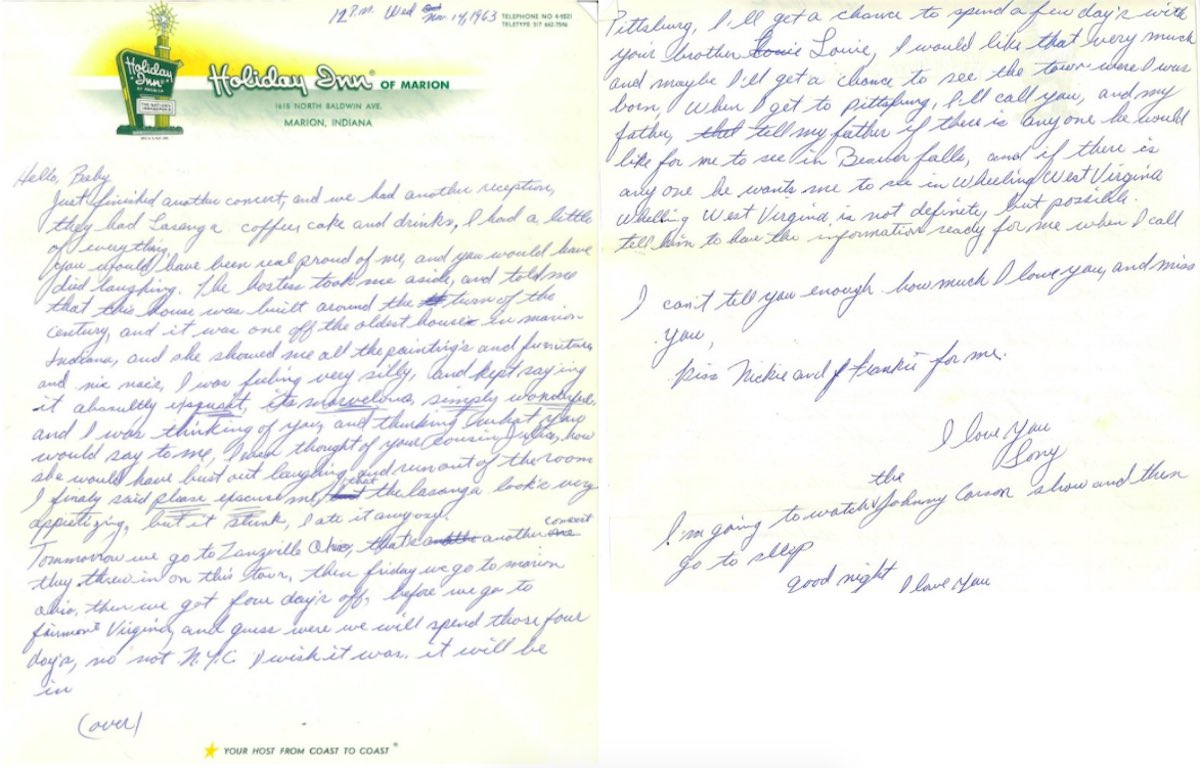 12 P.M. Wed Nov 14, 1963
TELEPHONE NO 4-9521
TELETYPE 317 662-7596
Holiday Inn
OF AMERICA
Holiday Inn® OF MARION
1615 NORTH BALDWIN AVE.
MARION, INDIANA
Hello, Baby
Just finished another concert, and we had another reception,
they had Lasanga coffee cake and drinks, I had a little
of everything,
You would have been real proud of me, and you would have
died laughing. The hostess took me aside, and told me
that this house was built around the turn of the
century, and it was one off the oldest house in marion
Indiana, and she showed me all the painting's and furniture
and nic nac's, I was feeling very silly, and kept saying
it absoultly exqusat, its marvelous, simply wonderful,
and I was thinking of you, and thinking what you
would say to me, I even thought of your cousin, how
she would have bust out laughing and run out of the room
I finaly said please excuse me, that the lasanga look's very
appetizing, but it stunk, I ate it anyway.
Tommorrow we go to Zanzville Ohio, that's another concert
they threw in on this tour, then friday we go to marion
ohio, then we got four day's off, before we go to
fairmont Virginia, and guess were we will spend those four
day's, no not N.Y.C. I wish it was. it will be
in
(over)
YOUR HOST FROM COAST TO COAST®
Pittsburg, I'll get a chance to spend a few day's with
your brother Louie, I would like that very much
and maybe I'll get a chance to see the town were I was
born, When I get to Pittsburg, I'll call you, and my
father, tell my father if there is anyone he would
like for me to see in Beaver falls, and if there is
any one he wants me to see in Wheeling West Virginia
Whelling West Virginia is not definite, but possible.
tell him to have the information ready for me when I call
I can't tell you enough how much I love you, and miss
you,
Kiss Nickie and Frankie for me.
I love You
Tony
I'm going to watch the Johnny Carson show and then
go to sleep
good night I love you